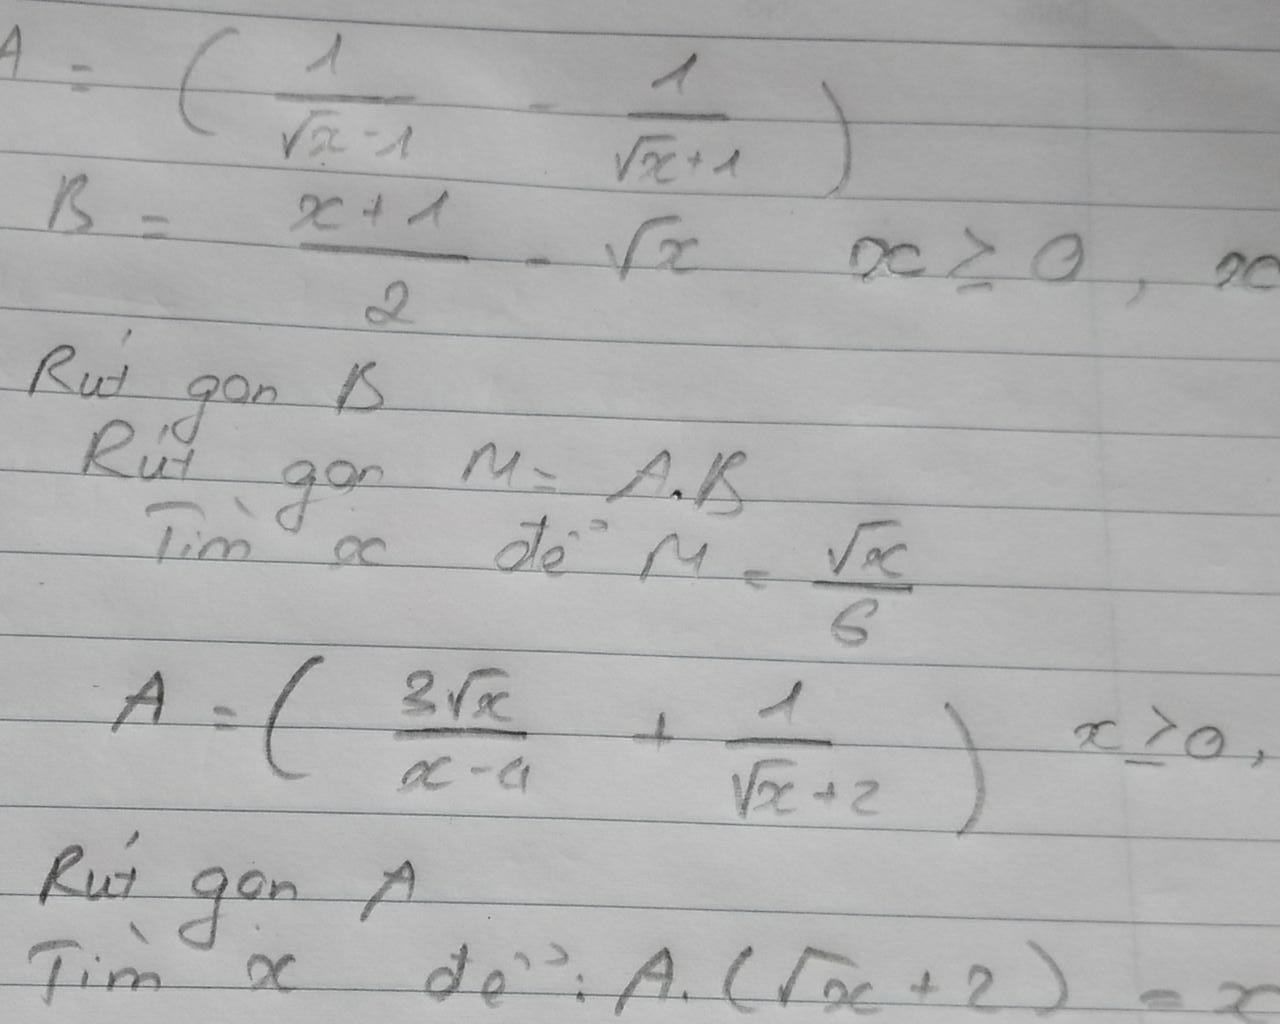 A = ( 1/(√x - 1) - 1/(√x + 1) )
B = (x + 1)/2 - √x x ≥ 0, x
Rút gọn B
Rút gọn M = A.B
Tìm x để M = √x/6
A = ( 3√x/(x - 4) + 1/(√x + 2) ) x ≥ 0,
Rút gọn A
Tìm x để: A.(√x + 2) = x